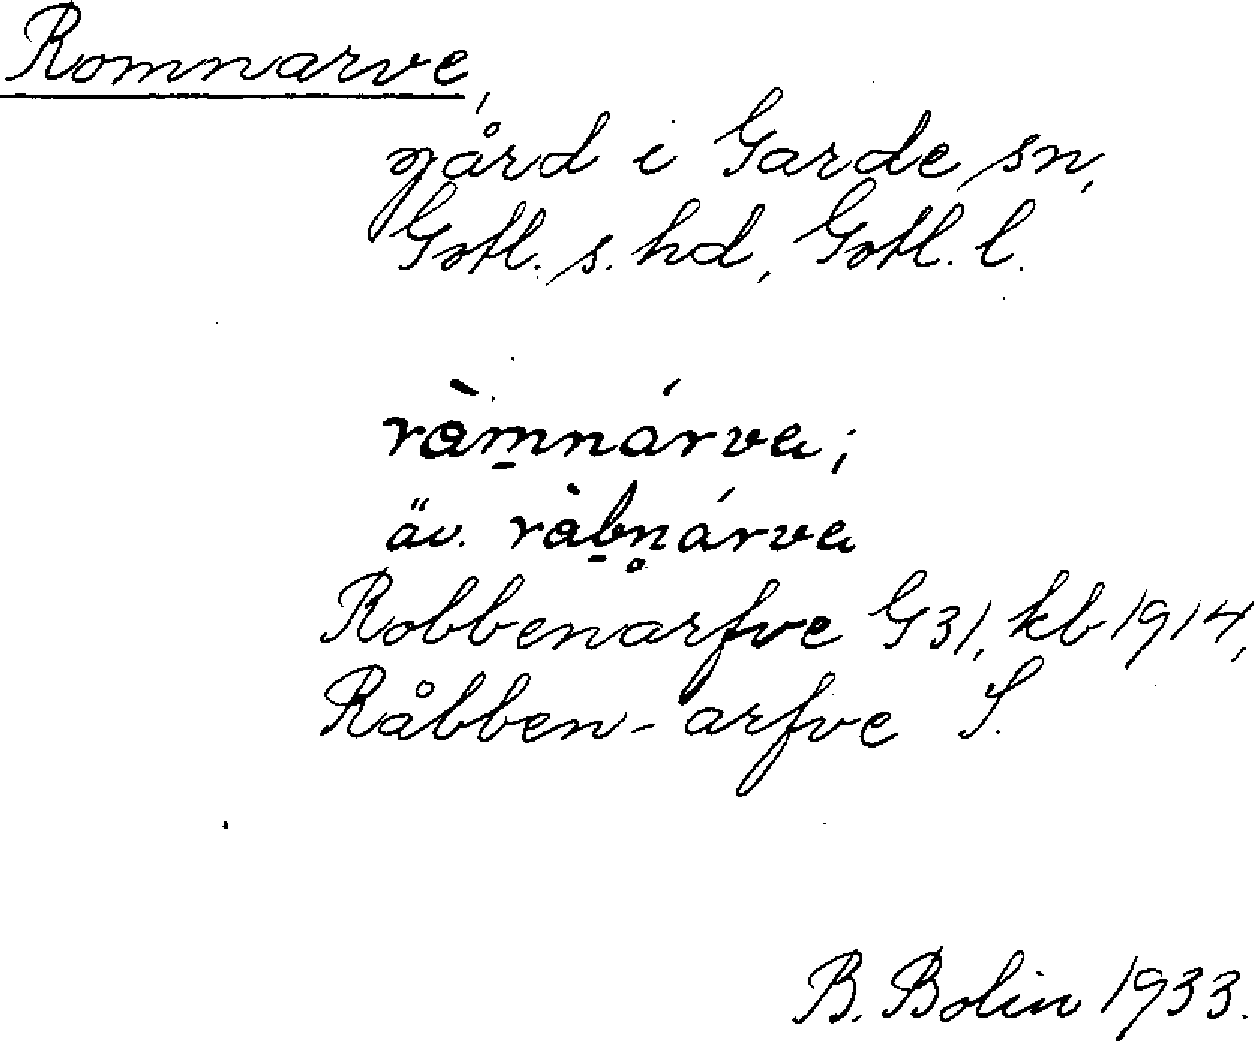 Romnarve,
gård i Garde sn,
Gotl. s. hd, Gotl. l.
ràm̠nárva;
äv. ràb̠n̥árva
Robbenarfve G31, kb 1914,
Råbben-arfve S.
B. Bolin 1933.